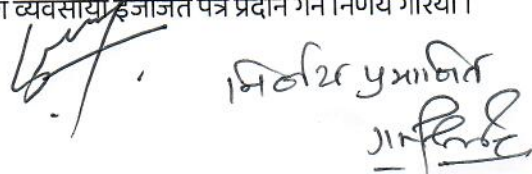 व्यवसायी इजाजत पत्र प्रदान गर्ने निर्णय गरियो ।
निर्णय प्रमाणित